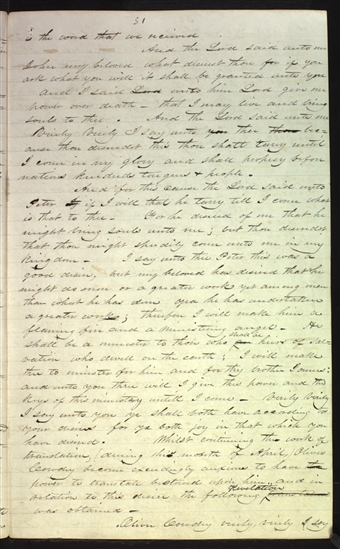 31
is the word that we received
And the Lord said unto me
John my beloved what desirest thou for if you
ask what you will it shall be granted unto you
and I said Lord unto him Lord give me
power over death — that I may live and bring
souls to thee. And the Lord said unto me
Verily Verily I say unto thee because
thou desiredst this thou shalt tarry until
I come in my glory and shall prophesy before
nations kindreds tongues & people.
And for this cause the Lord said unto
Peter if I will that he tarry till I come what
is that to thee — For he desired of me that he
might bring souls unto me; but thou desiredst
that thou might speedily come unto me in my
Kingdom — I say unto thee Peter this was a
good desire, but my beloved has desired that he
might do more or a greater work yet among men
than what he has done yea he has undertaken
a greater work; therefore I will make him as
flaming fire and a ministering angel — He
shall be a minister to those who shall be heirs of sal
vation who dwell on the earth; I will make
thee to minister for him and for thy brother James:
and unto you three will I give this power and the
Keys of this ministry until I come — Verily Verily
I say unto you ye shall both have according to
your desires for ye both joy in that which you
have desired. Whilst continuing the work of
translation, during this month of April, Oliver
Cowdery became exceedingly anxious to have the
power to translate bestowed upon him, and in
relation to this desire the following revelation
was obtained —
Oliver Cowdery verily, verily I say